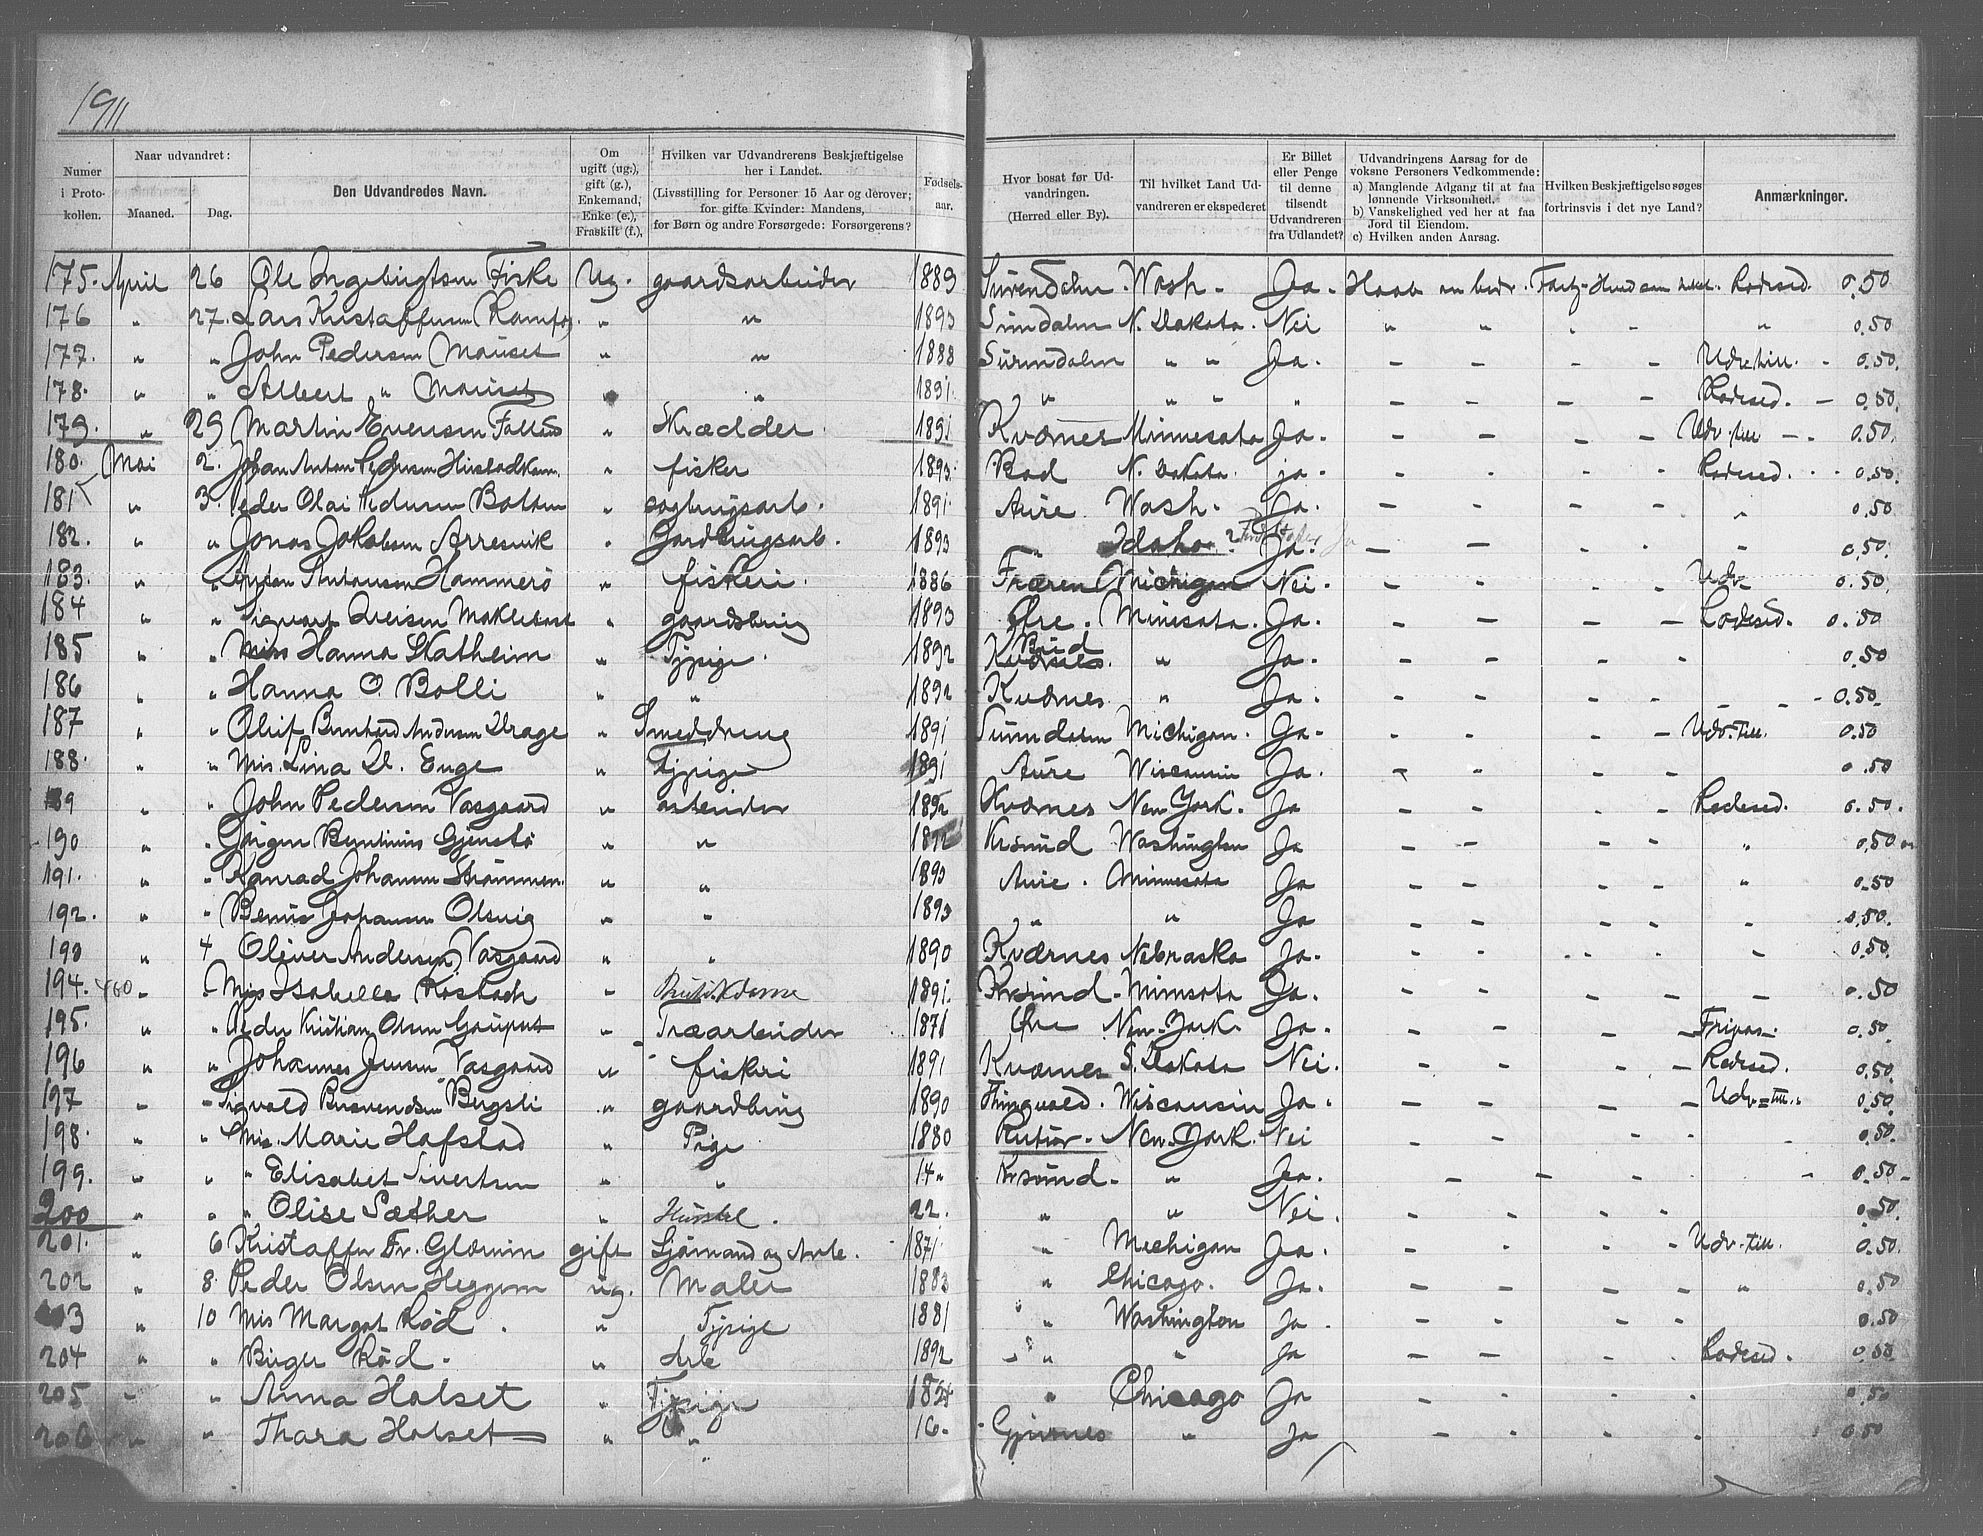 1911
Numer i Proto-kollen. | Naar udvandret: Maaned. Dag. | Den Udvandredes Navn. | Om ugift (ug.), gift (g.), Enkemand, Enke (e.), Fraskilt (f.), | Hvilken var Udvandrerens Beskjæftigelse her i Landet. (Livsstilling for Personer 15 Aar og derover; for gifte Kvinder: Mandens, for Børn og andre Forsørgede: Forsørgerens? | Fødsels-aar. | Hvor bosat før Ud-vandringen. (Herred eller By). | Til hvilket Land Ud-vandreren er ekspederet | Er Billet eller Penge til denne tilsendt Udvandreren fra Udlandet? | Udvandringens Aarsag for de voksne Personers Vedkommende: a) Manglende Adgang til at faa lønnende Virksomhed. b) Vanskelighed ved her at faa Jord til Eiendom. c) Hvilken anden Aarsag. | Hvilken Beskjæftigelse søges fortrinsvis i det nye Land? | Anmærkninger.
175. April 26 Ole Fiske Ug. gaardsarbeider 1889 Surendalen Wash. Ja. Haab om bedr. 0.50
176 " 27. Lars " " 1893 Sundalen N. Dakota. Nei " " " 0.50
177. " " John Pedersen Mauset " " 1888 Surendalen " " Ja. - - - - Udv. till. 0.50.
178. " " Albert " Mauset " 1891. " " " " - - - - Lodesed. - 0.50.
179. " 29 Martin Evensen " Skrædder 1891 Kvernes Minnesota Ja. - - - - Udv. till - 0.50.
180. Mai 2. Johan Anton Pedersen " fisker 1893. Bod N. Dakota. ja. - - - - Lodesed. 0.50.
181 " 3. Peder Olai Pedersen Botten " sagbrugsarb. 1891. Aure Wash. Ja. - - - - " 0.50
182. " " Jonas Jakobsen Arresvik " Gardbrugsarb. 1893 " Idaho. Ja. - - - - " 0.50.
183. " " Antonsen Hammerö " fiskeri. 1886 Fræren Michigan Nei. - - - - Udv 0.50.
184 " " Sigvart Iversen " gaardsbrug 1893 Øre. Minesota. Ja. - - - - Lodesed. 0.50
185 " " Miss Hanna Skatheim " Tjpige. 1892 Bud Kvernes. " Ja. - - - - 0.50
186 " " Hanna O. Bolli " " 1892 Kvernes " Ja. - - - - - 0.50.
187 " " Oluf Bernhard Andersen Drage " Smeddreng 1891 Surendalen Michigan. Ja. - - - - Udv. till. 0.50
188. " " Mis. Lina D. Enge " Tjpige 1891 Aure Wisconsin Ja. - - - - 0.50
189 " " John Pedersen Vasgaard " arbeider 1892 Kvernes New York. Ja - - - - Lodesed. 0.50.
190 " " Jørgen " " Krsund Washington Ja - - - - " 0.50
191. " " Konrad Johansen Strømmen. " " 1893 Aure. Minnesota Ja - - - - " 0.50
192. " " Johansen Olsvig " " 1893 " " Ja - - - - " 0.50.
193 " 4 Oliver Andersen Vasgaard " " 1890 Kvernes Nebraska Ja. - - - - 0.50.
194. " " Mis Isabella " 1891. Krsund. Minesota Ja. - - - - - 0.50
195. " " Peder Kristian Olsen " Træarbeider 1871 Øre New-York. Ja. - - - - Fripas. 0.50.
196 " " Johannes Jensen Vasgaard " fiskeri 1891 Kvernes S. Dakota Nei. - - - - Lodesed. 0.50.
197 " " Sigvald " gaardbrug 1890 Thingvold. Wisconsin Ja. - - - - Udv. till. 0.50.
198. " " Mis. Marie Hafstad " Pige 1880 New York. Nei - - - - 0.50.
199. " " " Elisabet Sivertsen " " 14 " Krsund. " Ja. - - - - - 0.50 -
200 " " " Olise Sæther " 22. " " Nei. - - - - 0.50.
201. " 6 Kristoffer Fr. gift Sjømand og Arb. 1871. " Mechigan Ja. - - - - Udv. till. 0.50.
202 " 8. Peder Olsen Heggem ug. Maler 1883 " Chicago. Ja. - - - - " 0.50
203 " 10 Mis Margot Rød. " Tjpige 1881 " Washington Ja. - - - - 0.50
204 " " Birger Rød. " Arb 1892 " " Ja - - - - Lodesed. 0.50
205 " " Anna Halset " Tjpige " Chicago Ja - - - - 0.50
206 " " Thara Halset " " 16. " Ja - - - - 0.50